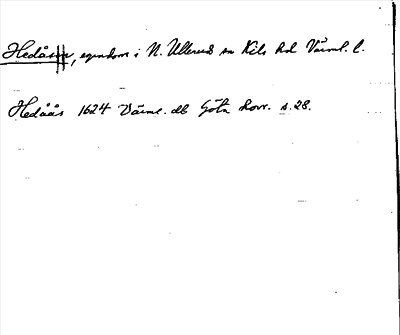 Hedåsen, egendom i N. Ullerud sn Kils hd Värml. l.
Hedåås 1624 Värml. db Göta hovr. s. 28.